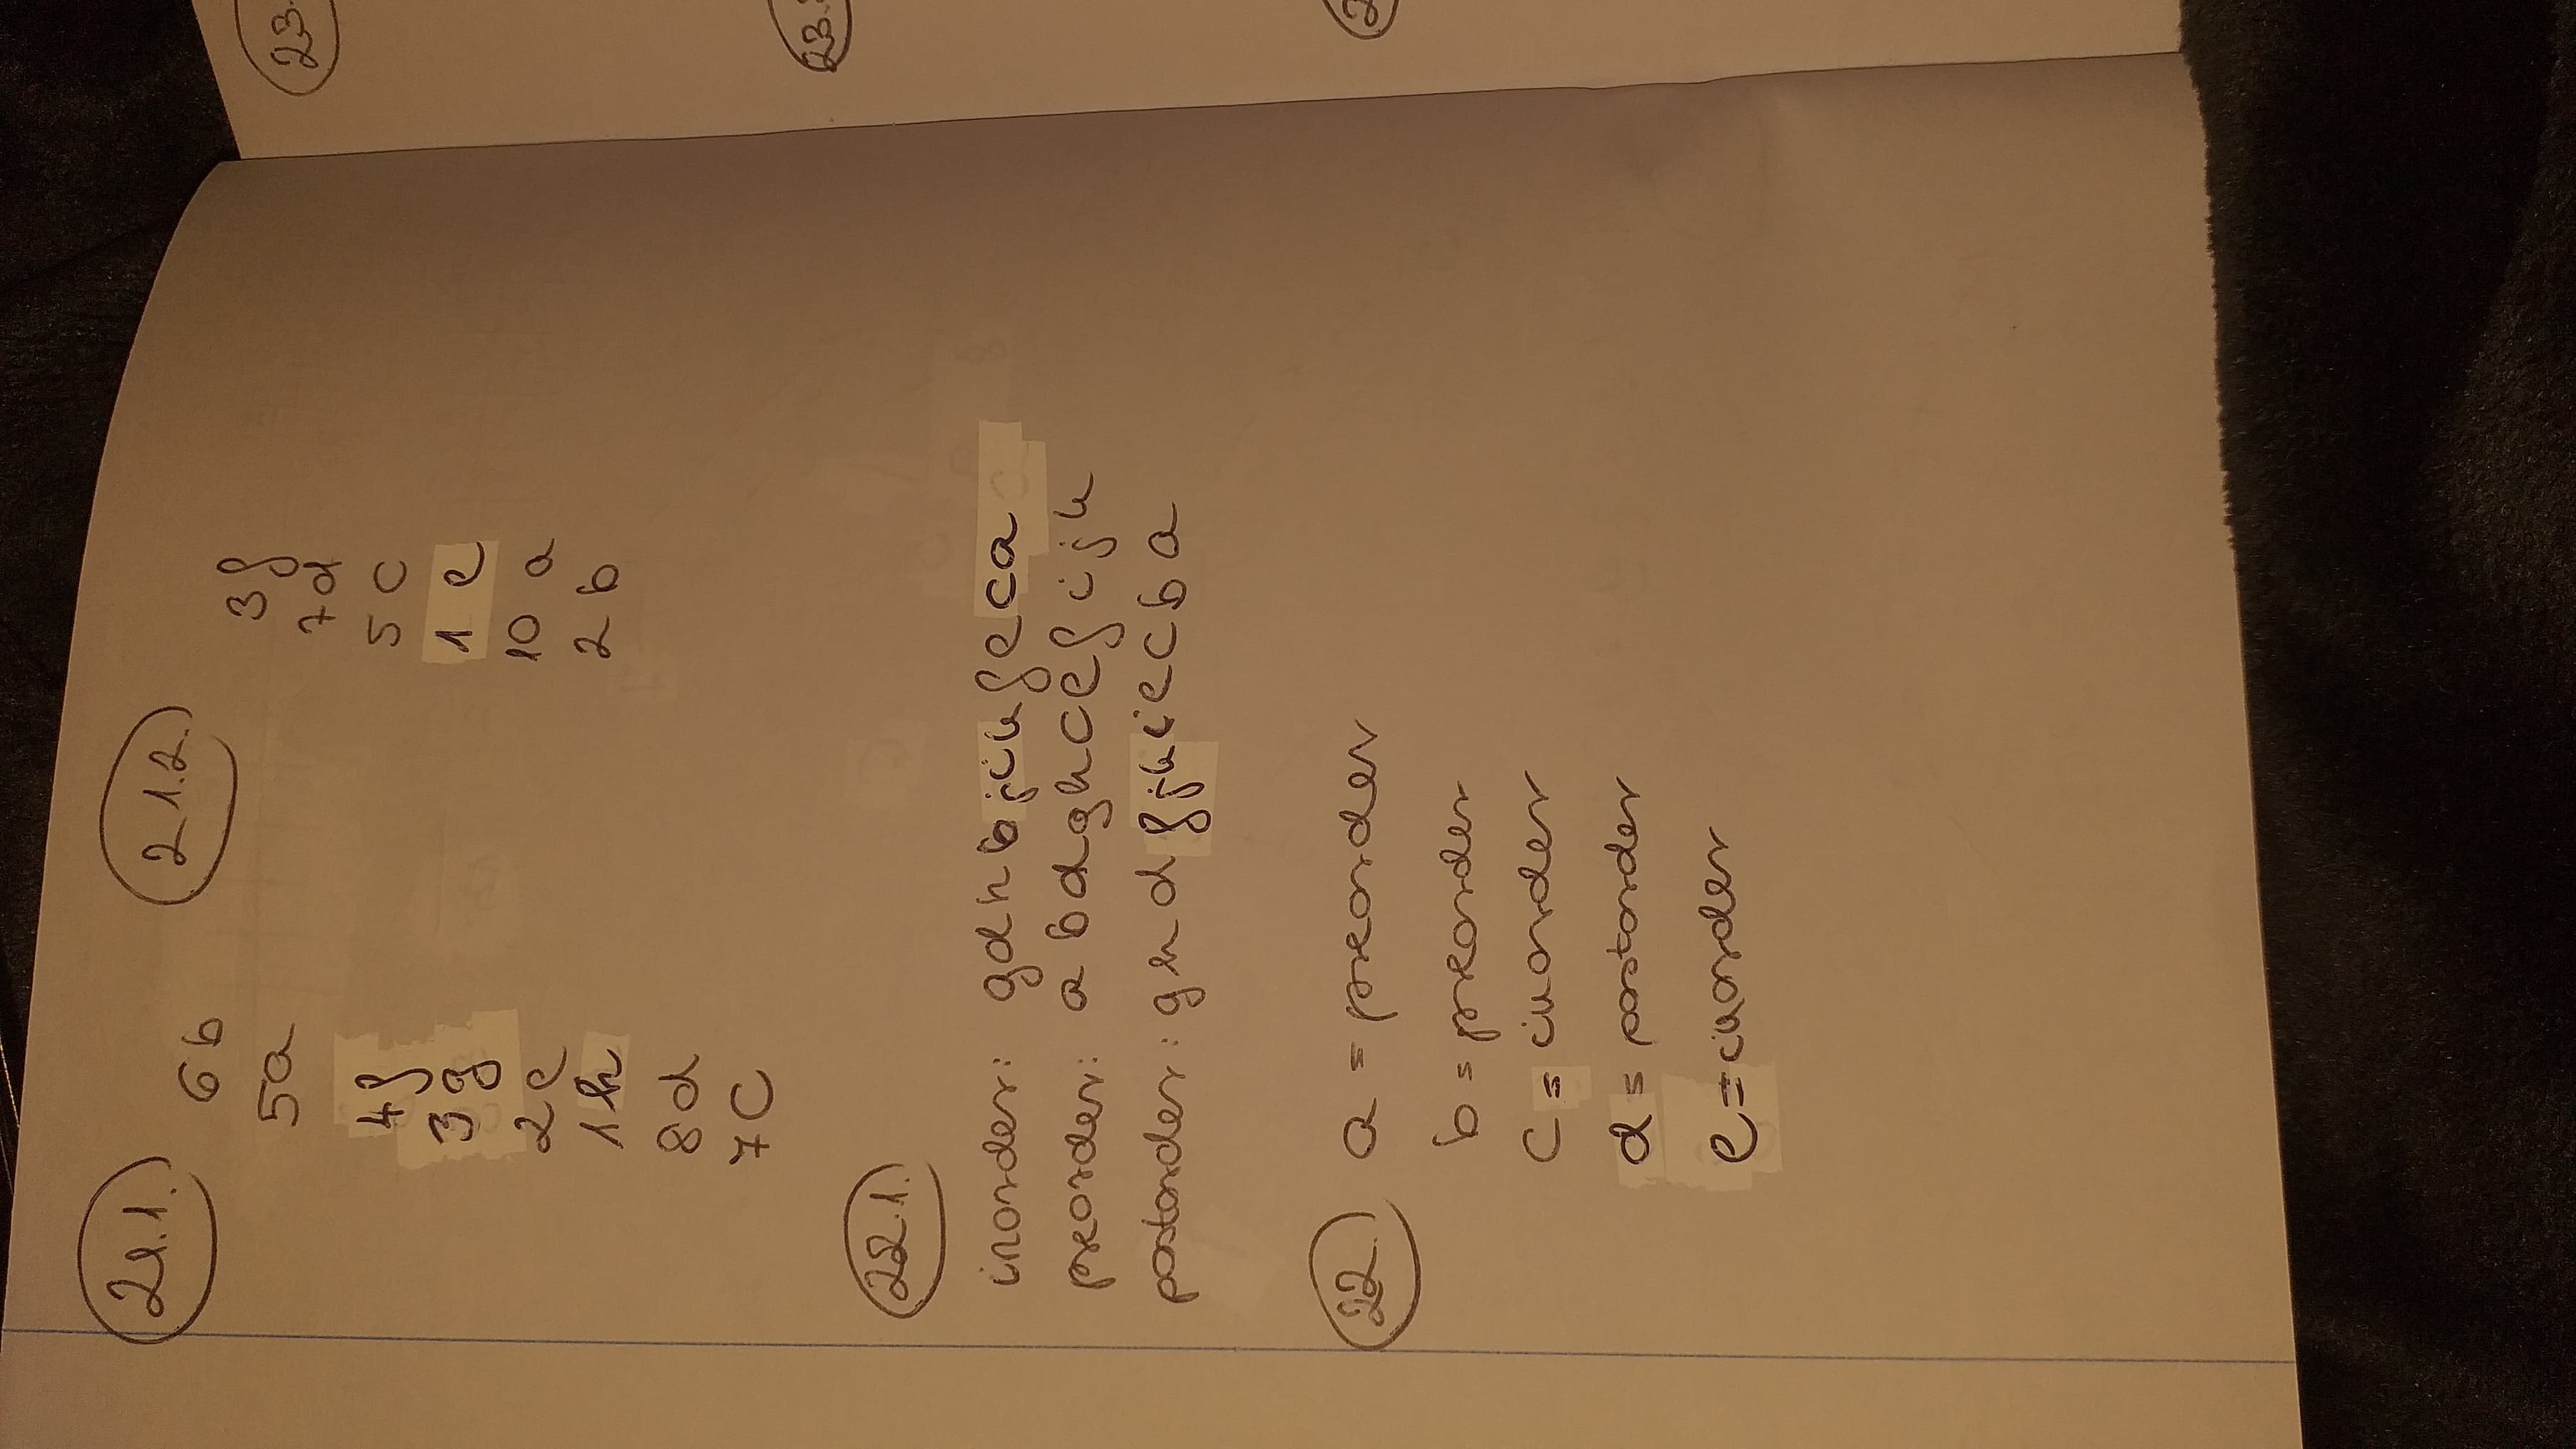 21.1.
6 b
5 a
4 f
3 g
2 e
1 h
8 d
7 C
21.2.
3 f
7 d
5 C
1 e
10 a
2 b
22.1.
inorder: g d h b j i k f e c a
preorder: a b d g h c e f i j k
postorder: g h d f j k i e c b a
22.
a = preorder
b = preorder
c = inorder
d = postorder
e = inorder
23.
23.